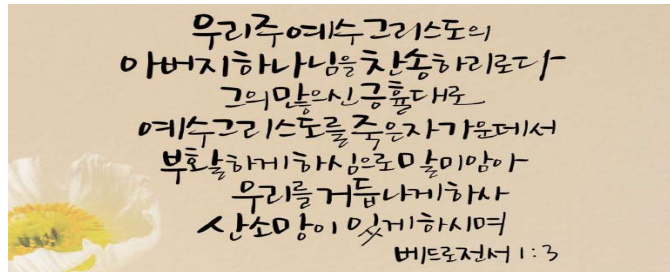 우리 주 예수 그리스도의
아버지 하나님을 찬송하리로다
그의 많으신 긍휼대로
예수 그리스도를 죽은 자 가운데서
부활하게 하심으로 말미암아
우리를 거듭나게 하사
산 소망이 있게 하시며
베드로전서 1:3